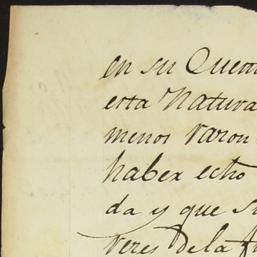 en su Quen
esta Natura
menos varon
haber echo
da y que su
veces de la fu